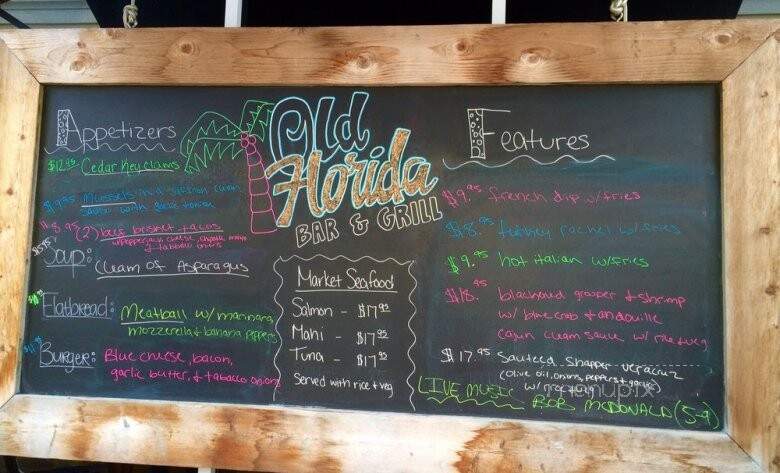 Appetizers
$12.95 Cedar Key clams
$9.95 Mussels in a saffron cream
sauce with
$8.95 (2) beef brisket tacos
w/pepperjack cheese, chipotle mayo
& tobacco onions
$5.95
Soup: Cream of Asparagus
Flatbread: Meatball w/ marinara,
mozzerella & banana peppers
Burger: Blue cheese, bacon,
garlic butter, & tobacco onions
Old
Florida
BAR & GRILL
Market Seafood
Salmon - $17.95
Mahi - $17.95
Tuna - $17.95
Served with rice & veg
Features
$9.95 french dip w/fries
$8.95 turkey rachel w/fries
$9.95 hot italian w/fries
$18.95 blackened grouper & shrimp
w/ blue crab & andouille
cajun cream sauce w/ rice & veg
$17.95 Sauteed Snapper veracruz
(olive oil, onions, peppers & garlic)
w/ rice & veg
LIVE MUSIC BOB MCDONALD (5-9)
menupix